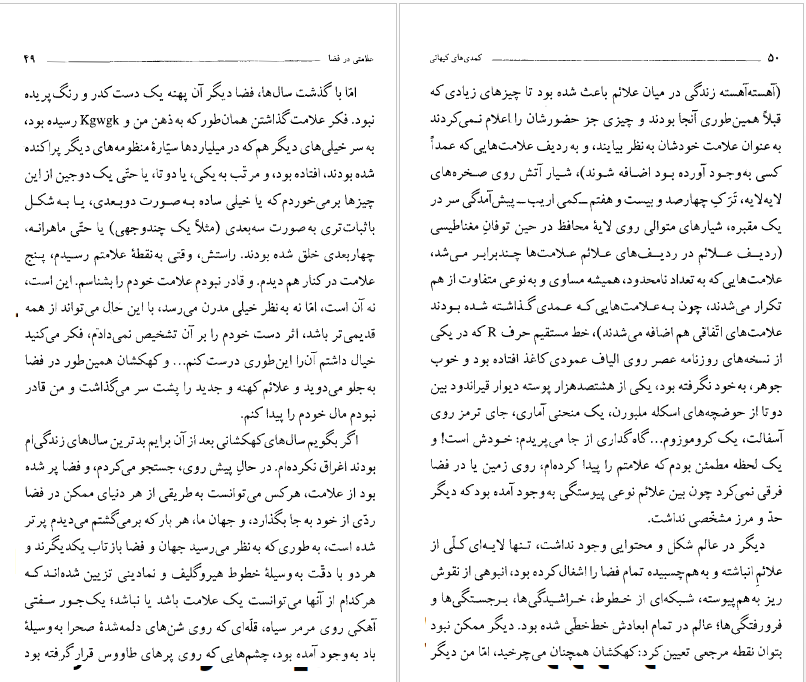 علامتی در فضا ۴۹
امّا با گذشت سال‌ها، فضا دیگر آن پهنه یک دست کدر و رنگ پریده
نبود. فکر علامت‌گذاشتن همان‌طور که به ذهن من و Kgwgk رسیده بود،
به سر خیلی‌های دیگر هم که در میلیاردها سیّارهٔ منظومه‌های دیگر پراکنده
شده بودند، افتاده بود، و مرتّب به یکی، یا دو تا، یا حتّی یک دوجین از این
چیزها برمی‌خوردم که یا خیلی ساده به صورت دوبعدی، یا به شکل
باثبات‌تری به صورت سه‌بعدی (مثلاً یک چندوجهی) یا حتّی ماهرانه،
چهاربعدی خلق شده بودند. راستش، وقتی به نقطهٔ علامتم رسیدم، پنج
علامت در کنار هم دیدم. و قادر نبودم علامت خودم را بشناسم. این است،
نه آن است، امّا نه به نظر خیلی مدرن می‌رسد، با این حال می‌تواند از همه
قدیمی‌تر باشد، اثر دست خودم را بر آن تشخیص نمی‌دادم، فکر می‌کنید
خیال داشتم آن‌را این‌طوری درست کنم... و کهکشان همین‌طور در فضا
به جلو می‌دوید و علائم کهنه و جدید را پشت سر می‌گذاشت و من قادر
نبودم مال خودم را پیدا کنم.
اگر بگویم سال‌های کهکشانی بعد از آن برایم بدترین سال‌های زندگی‌ام
بودند اغراق نکرده‌ام. در حال پیش روی، جستجو می‌کردم، و فضا پر شده
بود از علامت، هرکس می‌توانست به طریقی از هر دنیای ممکن در فضا
ردّی از خود به جا بگذارد، و جهان ما، هر بار که برمی‌گشتم می‌دیدم پر تر
شده است، به طوری که به نظر می‌رسید جهان و فضا بازتاب یکدیگرند و
هر دو با دقّت به وسیلهٔ خطوط هیروگلیف و نمادینی تزیین شده‌اند که
هرکدام از آنها می‌توانست یک علامت باشد یا نباشد؛ یک جور سفتی
آهکی روی مرمر سیاه، قلّه‌ای که روی شن‌های دلمه‌شدهٔ صحرا به وسیلهٔ
باد به وجود آمده بود، چشم‌هایی که روی پرهای طاووس قرار گرفته بود
۵۰ کمدی‌های کیهانی
(آهسته‌آهسته زندگی در میان علائم باعث شده بود تا چیزهای زیادی که
قبلاً همین‌طوری آنجا بودند و چیزی جز حضورشان را اعلام نمی‌کردند
به عنوان علامت خودشان به نظر بیایند، و به ردیف علامت‌هایی که عمداً
کسی به وجود آورده بود اضافه شوند)، شیار آتش روی صخره‌های
لایه‌لایه، تَرَکِ چهارصد و بیست و هفتم ـ کمی اریب ـ پیش‌آمدگی سر در
یک مقبره، شیارهای متوالی روی لایهٔ محافظ در حین توفانِ مغناطیسی
(ردیف علائم در ردیف‌های علائم علامت‌ها چندبرابر می‌شد،
علامت‌هایی که به تعداد نامحدود، همیشه مساوی و به نوعی متفاوت از هم
تکرار می‌شدند، چون به علامت‌هایی که عمدی گذاشته شده بودند
علامت‌های اتّفاقی هم اضافه می‌شدند)، خط مستقیم حرف R که در یکی
از نسخه‌های روزنامه عصر روی الیاف عمودی کاغذ افتاده بود و خوب
جوهر، به خود نگرفته بود، یکی از هشتصدهزار پوسته دیوار قیراندود بین
دو تا از حوضچه‌های اسکله ملبورن، یک منحنی آماری، جای ترمز روی
آسفالت، یک کروموزوم... گاه‌گداری از جا می‌پریدم: خودش است! و
یک لحظه مطمئن بودم که علامتم را پیدا کرده‌ام، روی زمین یا در فضا
فرقی نمی‌کرد چون بین علائم نوعی پیوستگی به وجود آمده بود که دیگر
حدّ و مرز مشخّصی نداشت.
دیگر در عالم شکل و محتوایی وجود نداشت، تنها لایه‌ای کلّی از
علائمِ انباشته و به هم چسبیده تمام فضا را اشغال کرده بود، انبوهی از نقوش
ریز به هم پیوسته، شبکه‌ای از خطوط، خراشیدگی‌ها، برجستگی‌ها و
فرورفتگی‌ها؛ عالم در تمام ابعادش خط‌خطّی شده بود. دیگر ممکن نبود
بتوان نقطه مرجعی تعیین کرد: کهکشان همچنان می‌چرخید، امّا من دیگر